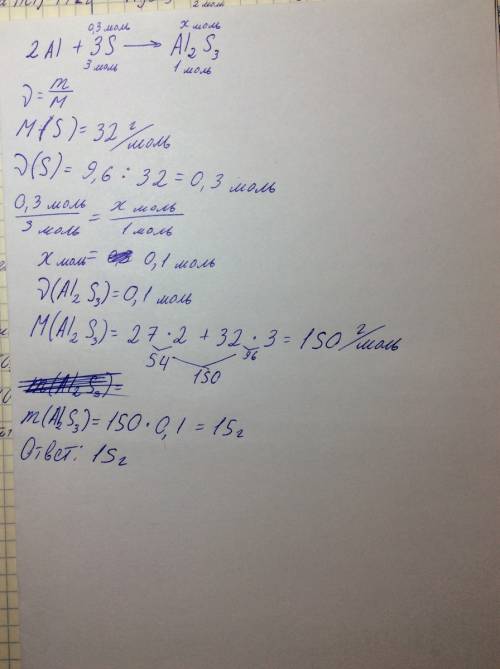 2 моль
0,3 моль x моль
2Al + 3S → Al₂S₃
3 моль 1 моль
ν = m/M
M(S) = 32 г/моль
ν(S) = 9,6 : 32 = 0,3 моль
0,3 моль/3 моль = x моль/1 моль
x моль = 0,1 моль
ν(Al₂S₃) = 0,1 моль
M(Al₂S₃) = 27 · 2 + 32 · 3 = 150 г/моль
54 96
150
m(Al₂S₃) =
m(Al₂S₃) = 150 · 0,1 = 15г
Ответ: 15г